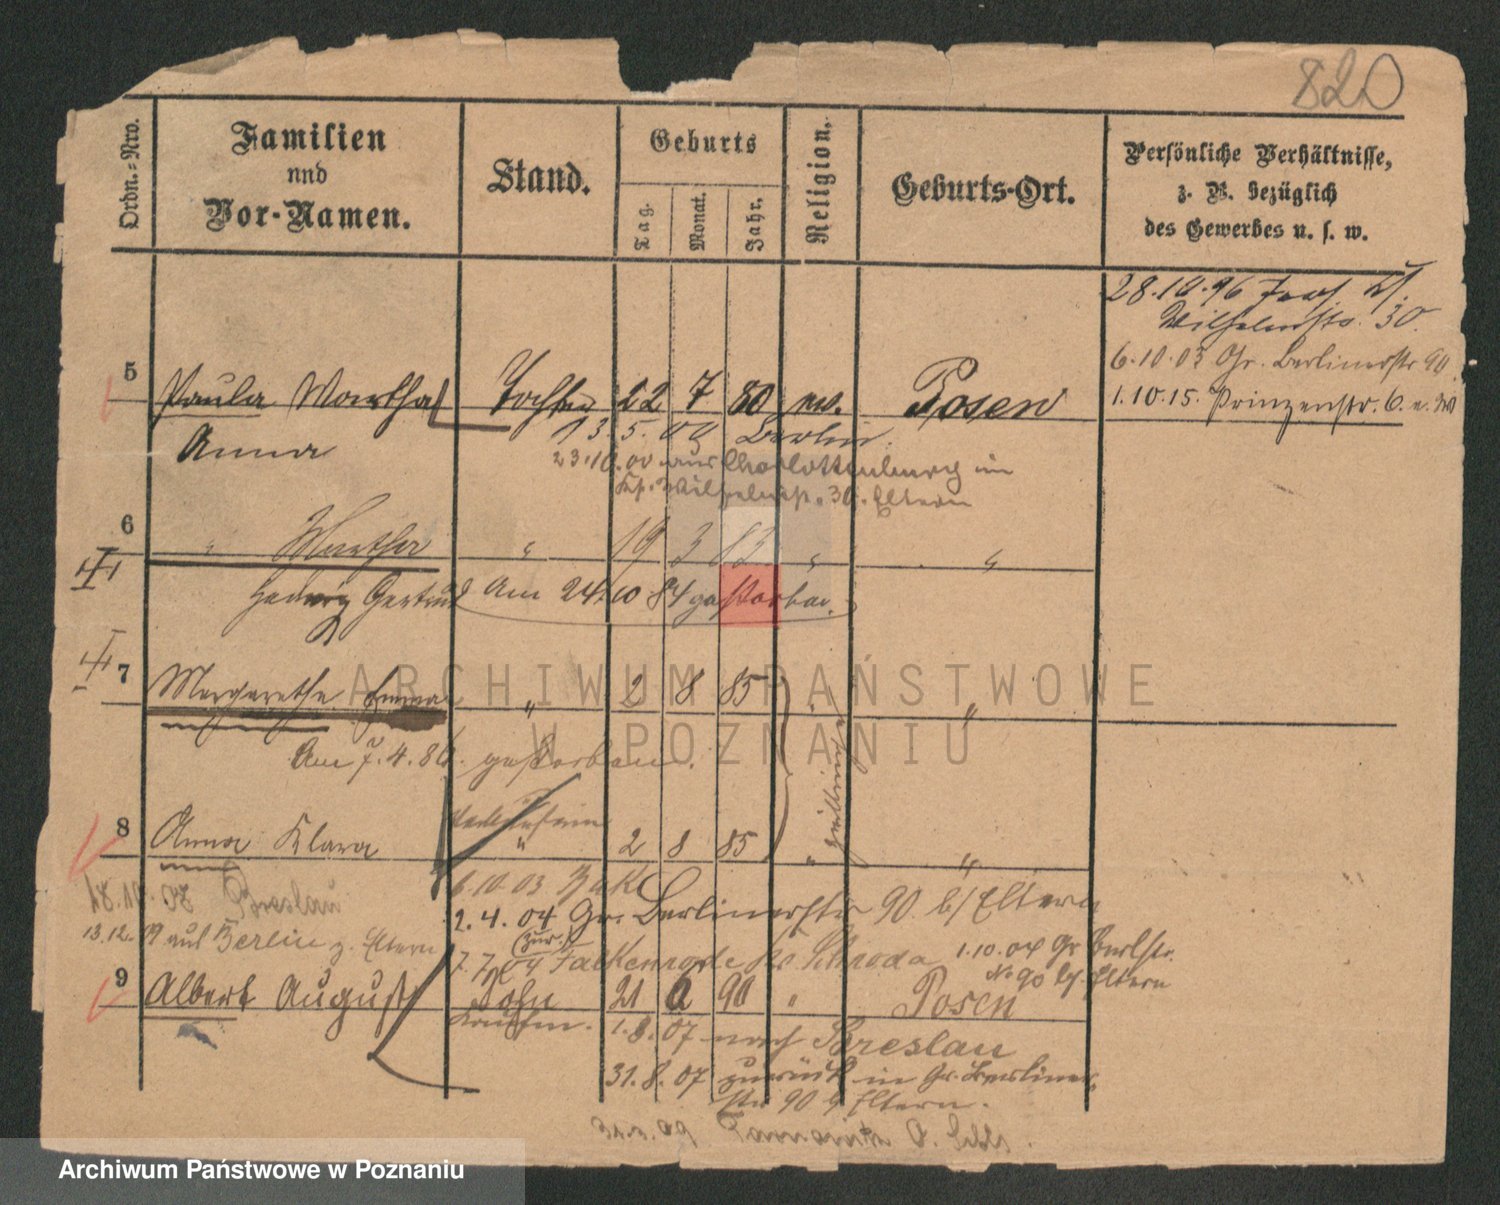 820
Ordn.-Nro.
Familien
und
Vor-Namen.
Stand.
Geburts
Tag.
Monat.
Jahr.
Religion.
Geburts-Ort.
Persönliche Verhältnisse,
z. B. bezüglich
des Gewerbes u. s. w.
28.10.96
Wilhelmstr. 30.
6.10.03 Gr. Berlinerstr 90.
5 Paula Martha Tochter 22 7 80 ev. Posen 1.10.15. Prinzenstr. 6.
Anna 13.5.00 Berlin.
23.10.00 aus Charlottenburg in
Wilhelmstr. 30. Eltern
6 " Martha " 19 3 83 " "
Hedwig Gertrud Am 24.10 84 gestorben.
7 Margarethe Emma " 2 8 85 "
Zwillinge
Am 7.4.86. gestorben.
8 Anna Klara " 2 8 85 " "
6.10.03
18.10.08 Breslau 2.4.04 Gr. Berlinerstr 90 b/ Eltern
13.12.09 aus Berlin z. Eltern 7.7.04 (zur.) Falkenrode Kr. Schroda 1.10.04 Gr Berlstr.
No 90 b/ Eltern
9 Albert August Sohn 21 6 90 " Posen
1.8.07 nach Breslau
31.8.07 zurück in Gr. Berliner-
str 90 b Eltern.
31.3.09
ARCHIWUM PAŃSTWOWE
W POZNANIU
Archiwum Państwowe w Poznaniu